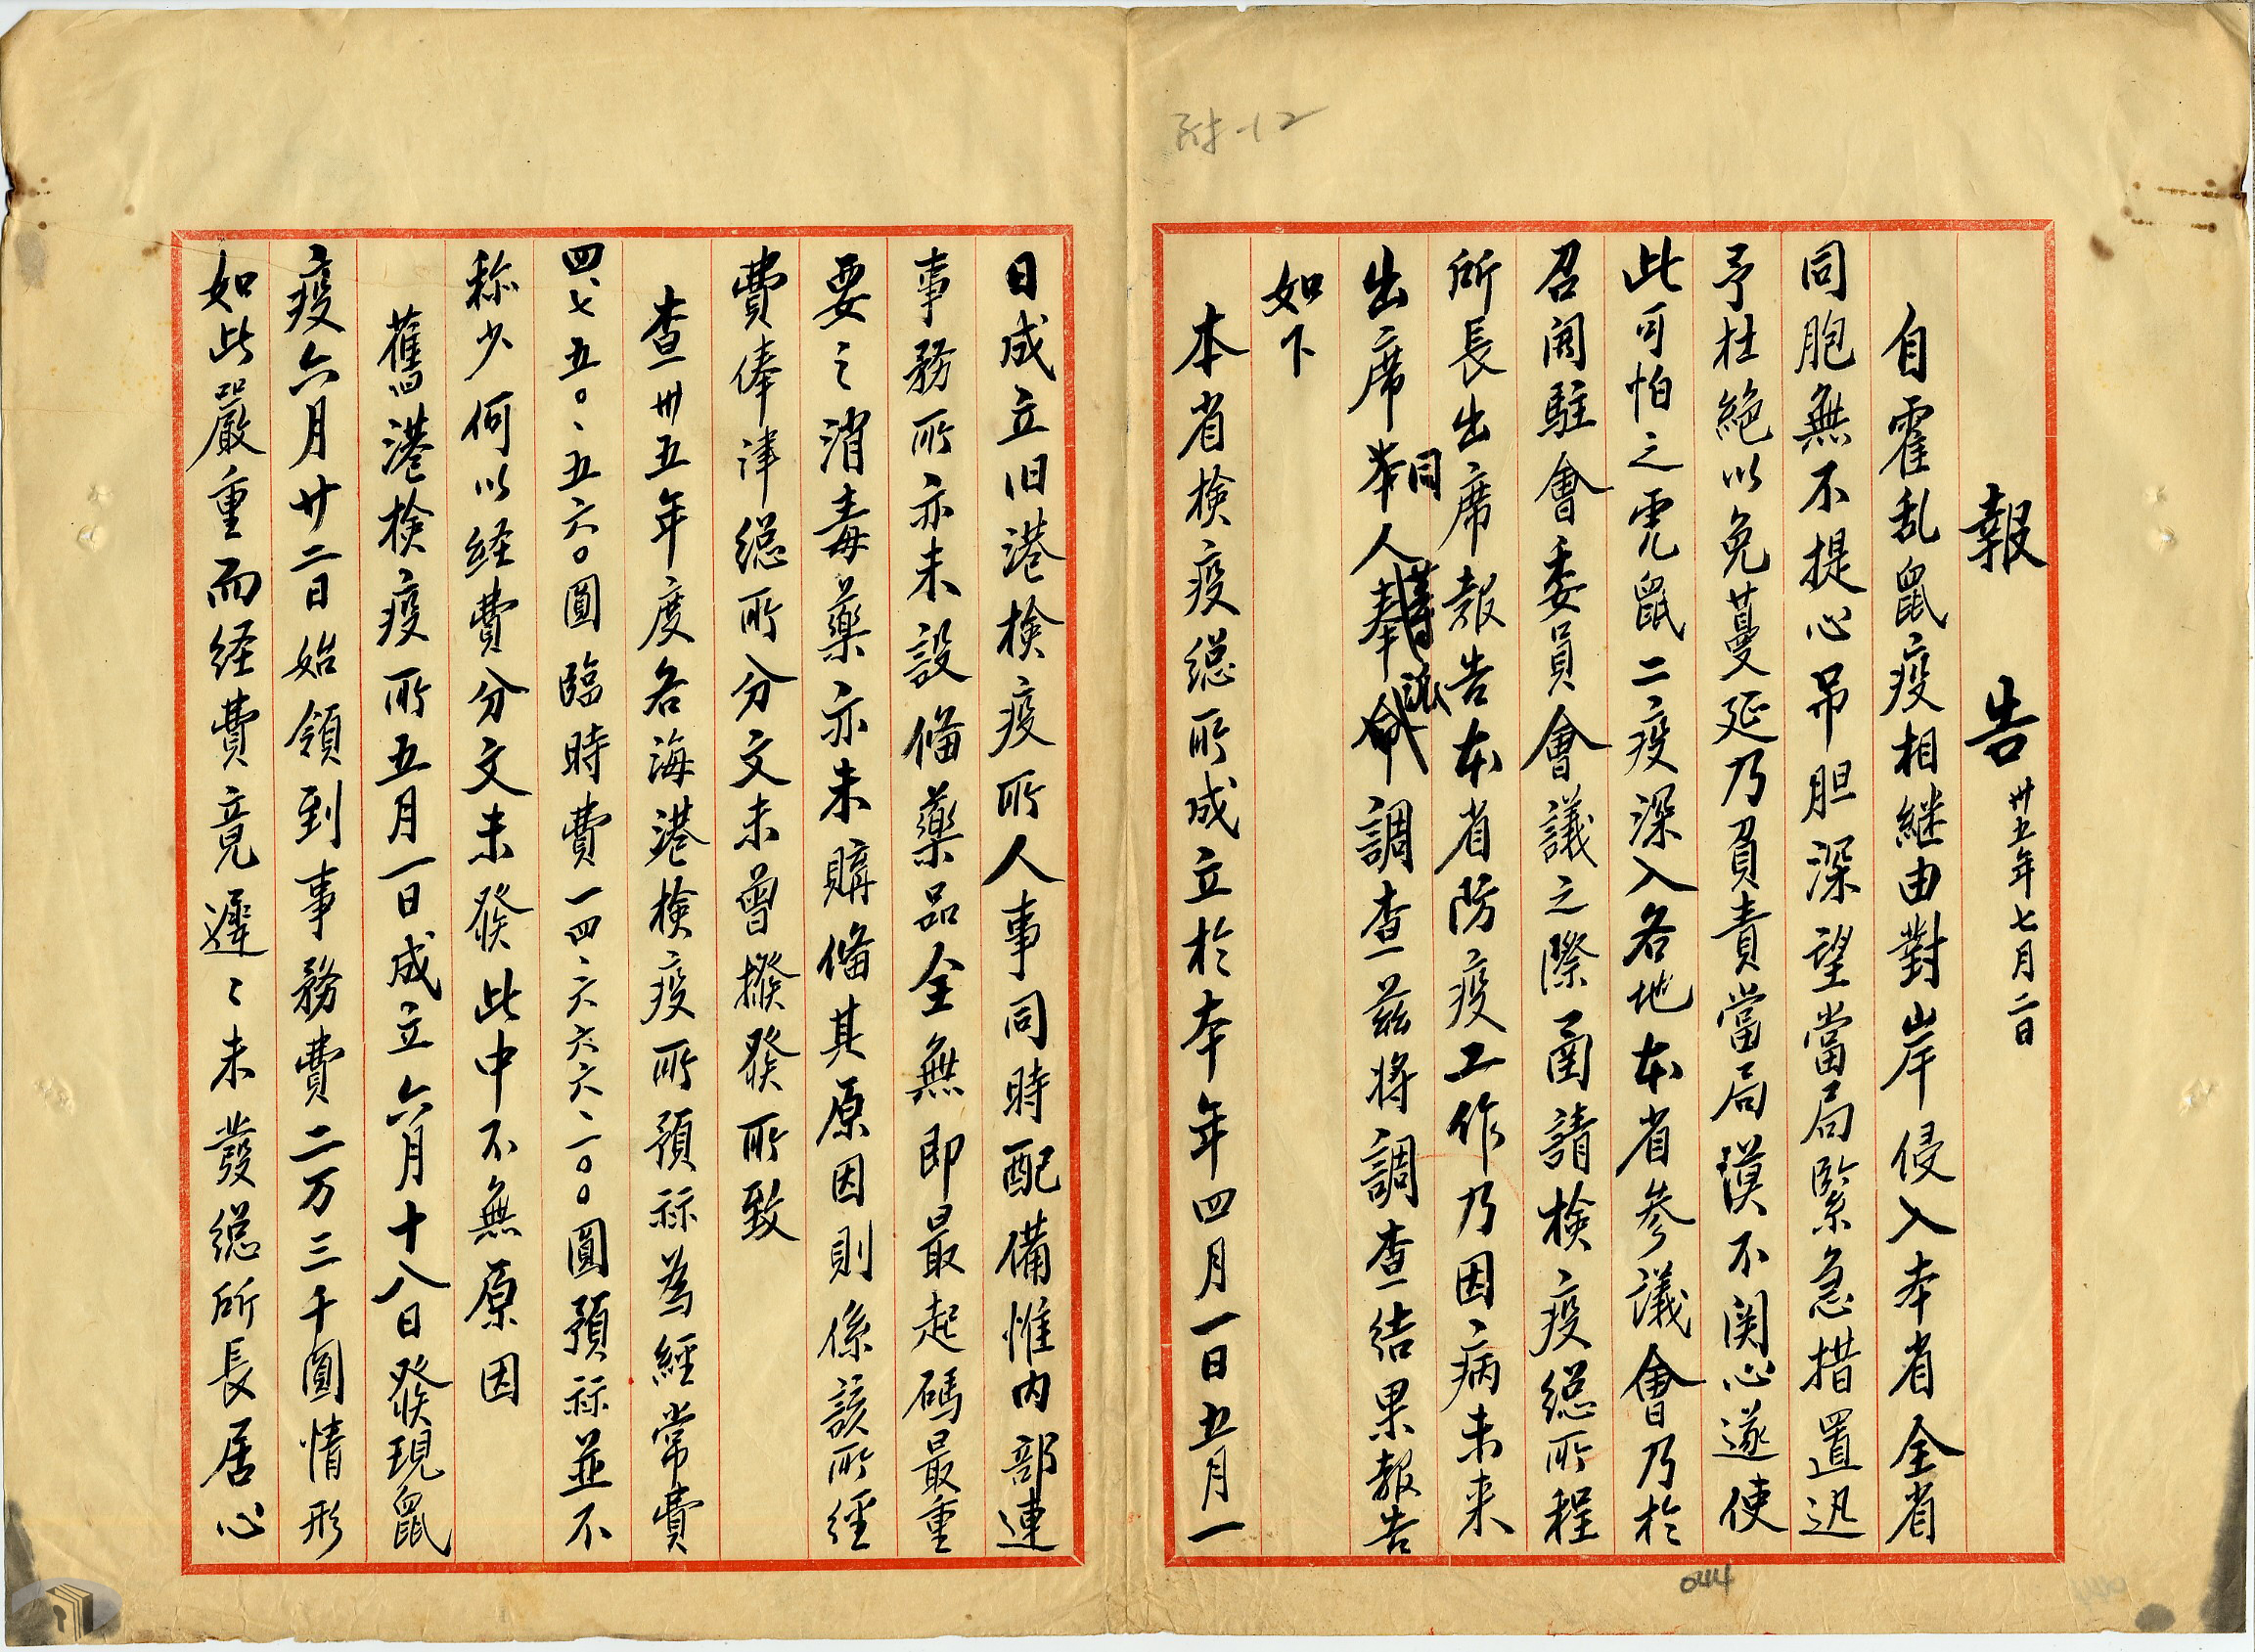 附-12
報告 卅五年七月二日
自霍乱鼠疫相継由對岸侵入本省全省
同胞無不提心吊胆深望當局緊急措置迅
予杜絶以免蔓延乃負責當局漠不関心遂使
此可怕之霍鼠二疫深入各地本省參議會乃於
召開駐會委員會議之際函請檢疫総所程
所長出席報告本省防疫工作乃因病未来
出席本同人調查茲将調查结果報告
如下
本省檢疫総所成立於本年四月一日五月一
日成立旧港檢疫所人事同時配備惟内部連
事務所亦未設備藥品全無即最起碼最重
要之消毒藥亦未購備其原因則係該所經
費俸津総所分文未曾撥發所致
查卅五年度各海港檢疫所預祘為經常費
四、七五〇、五六〇圓臨時費一四、六六六、一〇〇圓預祘並不
称少何以経費分文未發此中不無原因
舊港檢疫所五月一日成立六月十八日發現鼠
疫六月廿二日始領到事務費二万三千圓情形
如此嚴重而経費竟遲々未發総所長居心
044